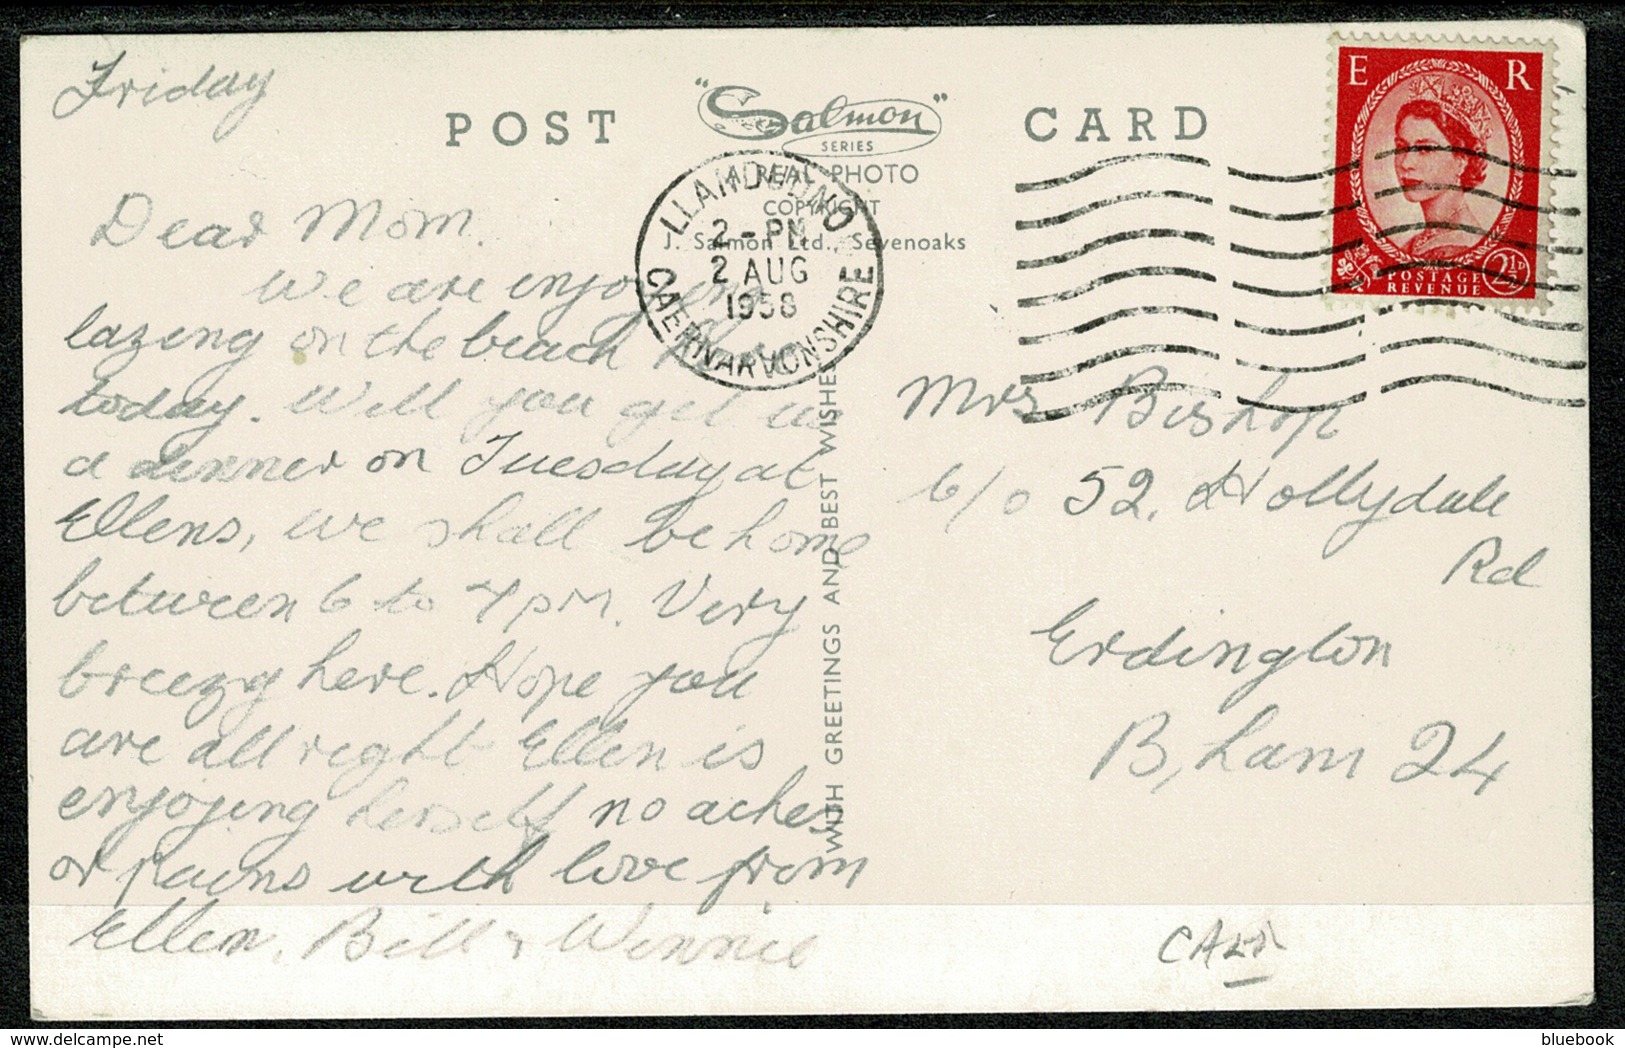 Friday
POST "Salmon" CARD
SERIES
A REAL PHOTO
COPYRIGHT
J. Salmon Ltd., Sevenoaks
LLANDUDNO
2 - PM
2 AUG
1958
CAERNARVONSHIRE
E R
POSTAGE
REVENUE
2½D
Dear Mom.
We are enjoying
lazing on the beach
today. Will you get us
a dinner on Tuesday at
Ellens, we shall be home
between 6 to 7 pm. Very
breezy here. Hope you
are all right Ellen is
enjoying herself no aches
or pains with love from
Ellen. Bill & Winnie
WITH GREETINGS AND BEST WISHES
Mrs Bishop
c/o 52, Hollydale
Rd
Erdington
B,ham 24
bluebook